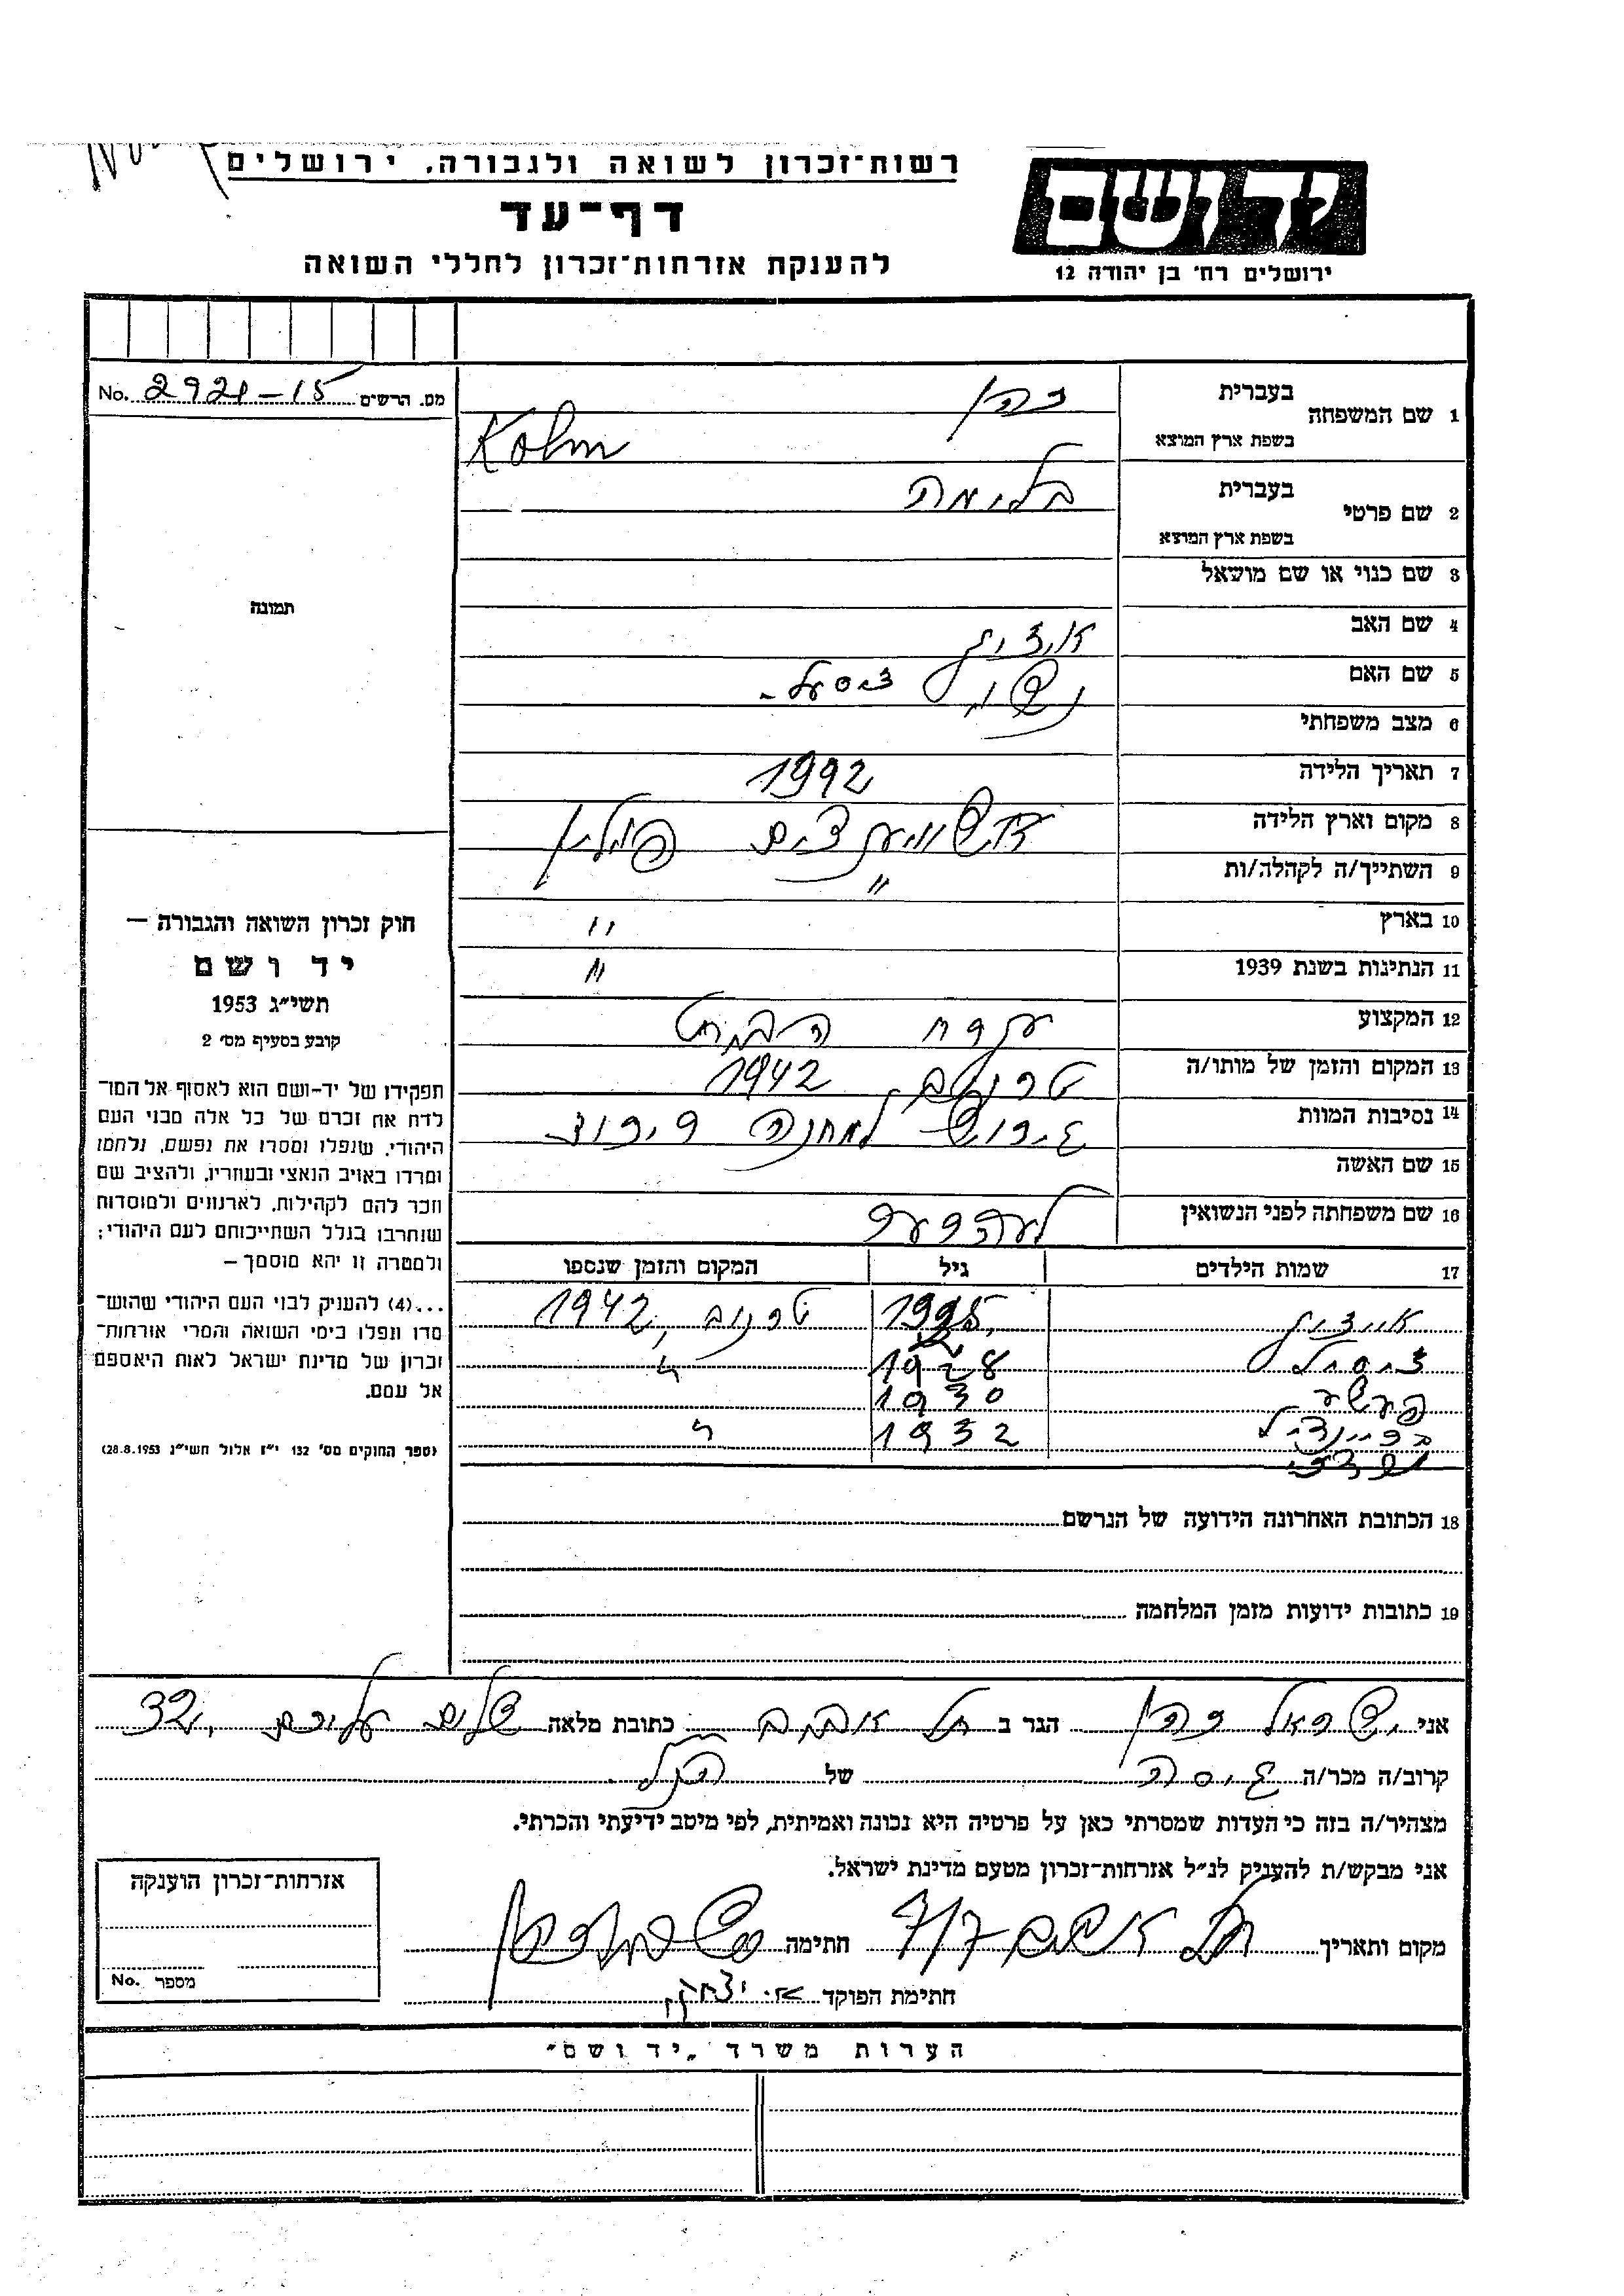 רשות־זכרון לשואה ולגבורה, ירושלים
דף־עד
להענקת אזרחות־זכרון לחללי השואה
יד ושם
ירושלים רח׳ בן יהודה 12
מס. הרשים No. 2921-15
תמונה
חוק זכרון השואה והגבורה —
יד ושם
תשי״ג 1953
קובע בסעיף מס׳ 2
תפקידו של יד-ושם הוא לאסוף אל המו־
לדת את זכרם של כל אלה מבני העם
היהודי, שנפלו ומסרו את נפשם, נלחמו
ומרדו באויב הנאצי ובעוזריו, ולהציב שם
וזכר להם לקהילות, לארגונים ולמוסדות
שנחרבו בגלל השתייכותם לעם היהודי;
ולמטרה זו יהא מוסמך —
...(4) להעניק לבני העם היהודי שהוש־
מדו ונפלו בימי השואה והמרי אזרחות־
זכרון של מדינת ישראל לאות היאספם
אל עמם.
(ספר החוקים מס׳ 132 י״ז אלול תשי״ג 28.8.1953)
1 שם המשפחה בעברית כהן
בשפת ארץ המוצא Kohn
2 שם פרטי בעברית בלימה
בשפת ארץ המוצא
3 שם כנוי או שם מושאל
4 שם האב איציק
5 שם האם
6 מצב משפחתי נשוי
7 תאריך הלידה
8 מקום וארץ הלידה פולין
9 השתייך/ה לקהלה/ות "
10 בארץ "
11 הנתינות בשנת 1939 "
12 המקצוע עקרת הבית
13 המקום והזמן של מותו/ה 1942
14 נסיבות המוות גירוש למחנה ריכוז
15 שם האשה
16 שם משפחתה לפני הנשואין
17 שמות הילדים גיל המקום והזמן שנספו
1942
1928 "
1930
1932 "
18 הכתובת האחרונה הידועה של הנרשם
19 כתובות ידועות מזמן המלחמה
אני ישראל כהן הגר ב תל אביב כתובת מלאה שלום עליכם 32,
קרוב/ה מכר/ה גיסה של הנ״ל
מצהיר/ה בזה כי העדות שמסרתי כאן על פרטיה היא נכונה ואמיתית, לפי מיטב ידיעתי והכרתי.
אני מבקש/ת להעניק לנ״ל אזרחות־זכרון מטעם מדינת ישראל.
מקום ותאריך תל אביב 7/7 חתימה
חתימת הפוקד א. יצחקי
אזרחות־זכרון הוענקה
מספר No.
הערות משרד „יד ושם״